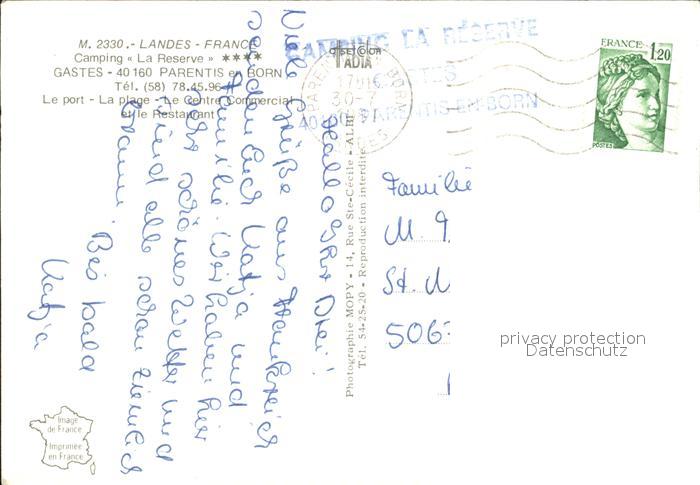 M. 2330.- LANDES - FRANCE
Camping « La Reserve » ★★★★
GASTES - 40160 PARENTIS en BORN
Tél. (58) 78.45.96
Le port - La plage - Le Centre Commercial
et le Restaurant
Hallo Ihr Drei!
Viele Grüße aus Frankreich
senden Euch Katja und
Familie. Wir haben hier
sehr schönes Wetter und
sind alle schon ziemlich
braun. Bis bald
Katja
Image
de France
Imprimée
en France
Photographie MOPY - 14, Rue Ste-Cécile - ALBI
Tél. 54-25-20 - Reproduction interdite
CAMPING LA RÉSERVE
GASTES
40160 PARENTIS-EN-BORN
30-7
FRANCE
1,20
POSTES
Familie
M.
St.
506
privacy protection
Datenschutz